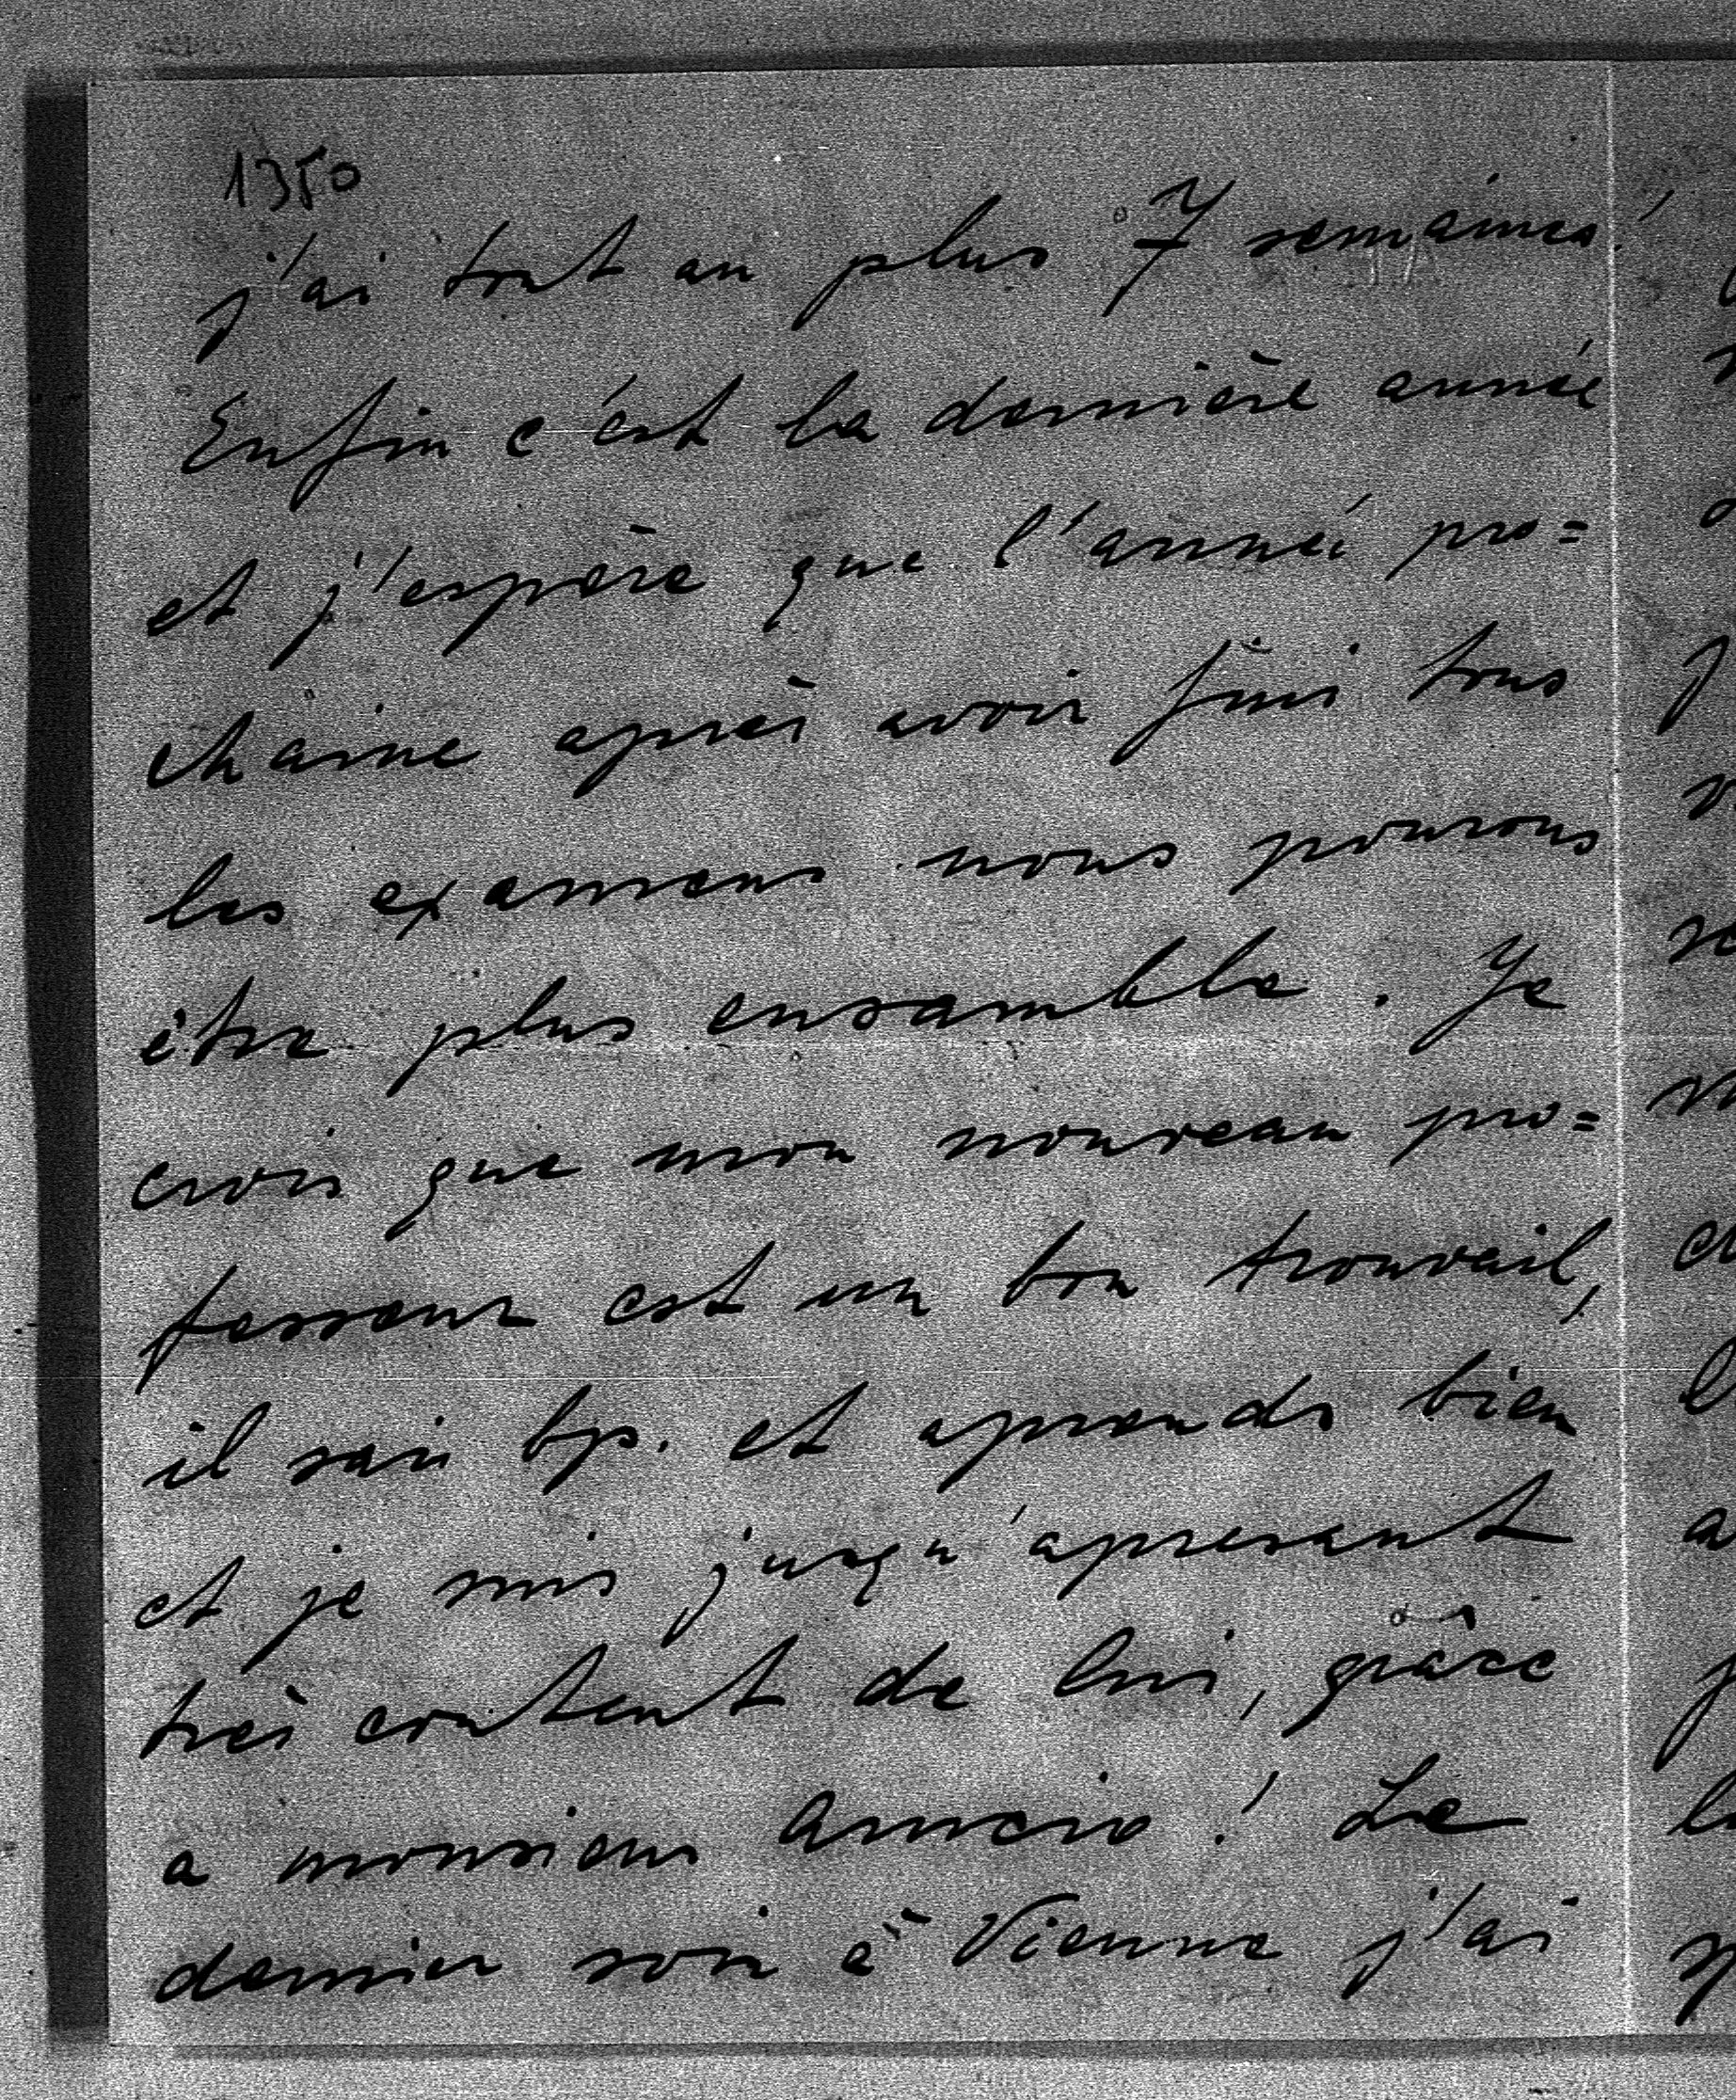 1350
j'ai tout au plus 7 semaines!
Enfin c'ést la dernière année
et j'espère que l'année pro=
chaine après avoir fini tous
les examens nous pourons
être plus ensamble. Je
crois que mon nouveau pro=
fesseur est un bon trouvail,
il sais bp. et aprends bien
et je suis j'usqu'apresent
très content de lui, grâce
a monsieur Amero! Le
dernier soir à Vienne j'ai